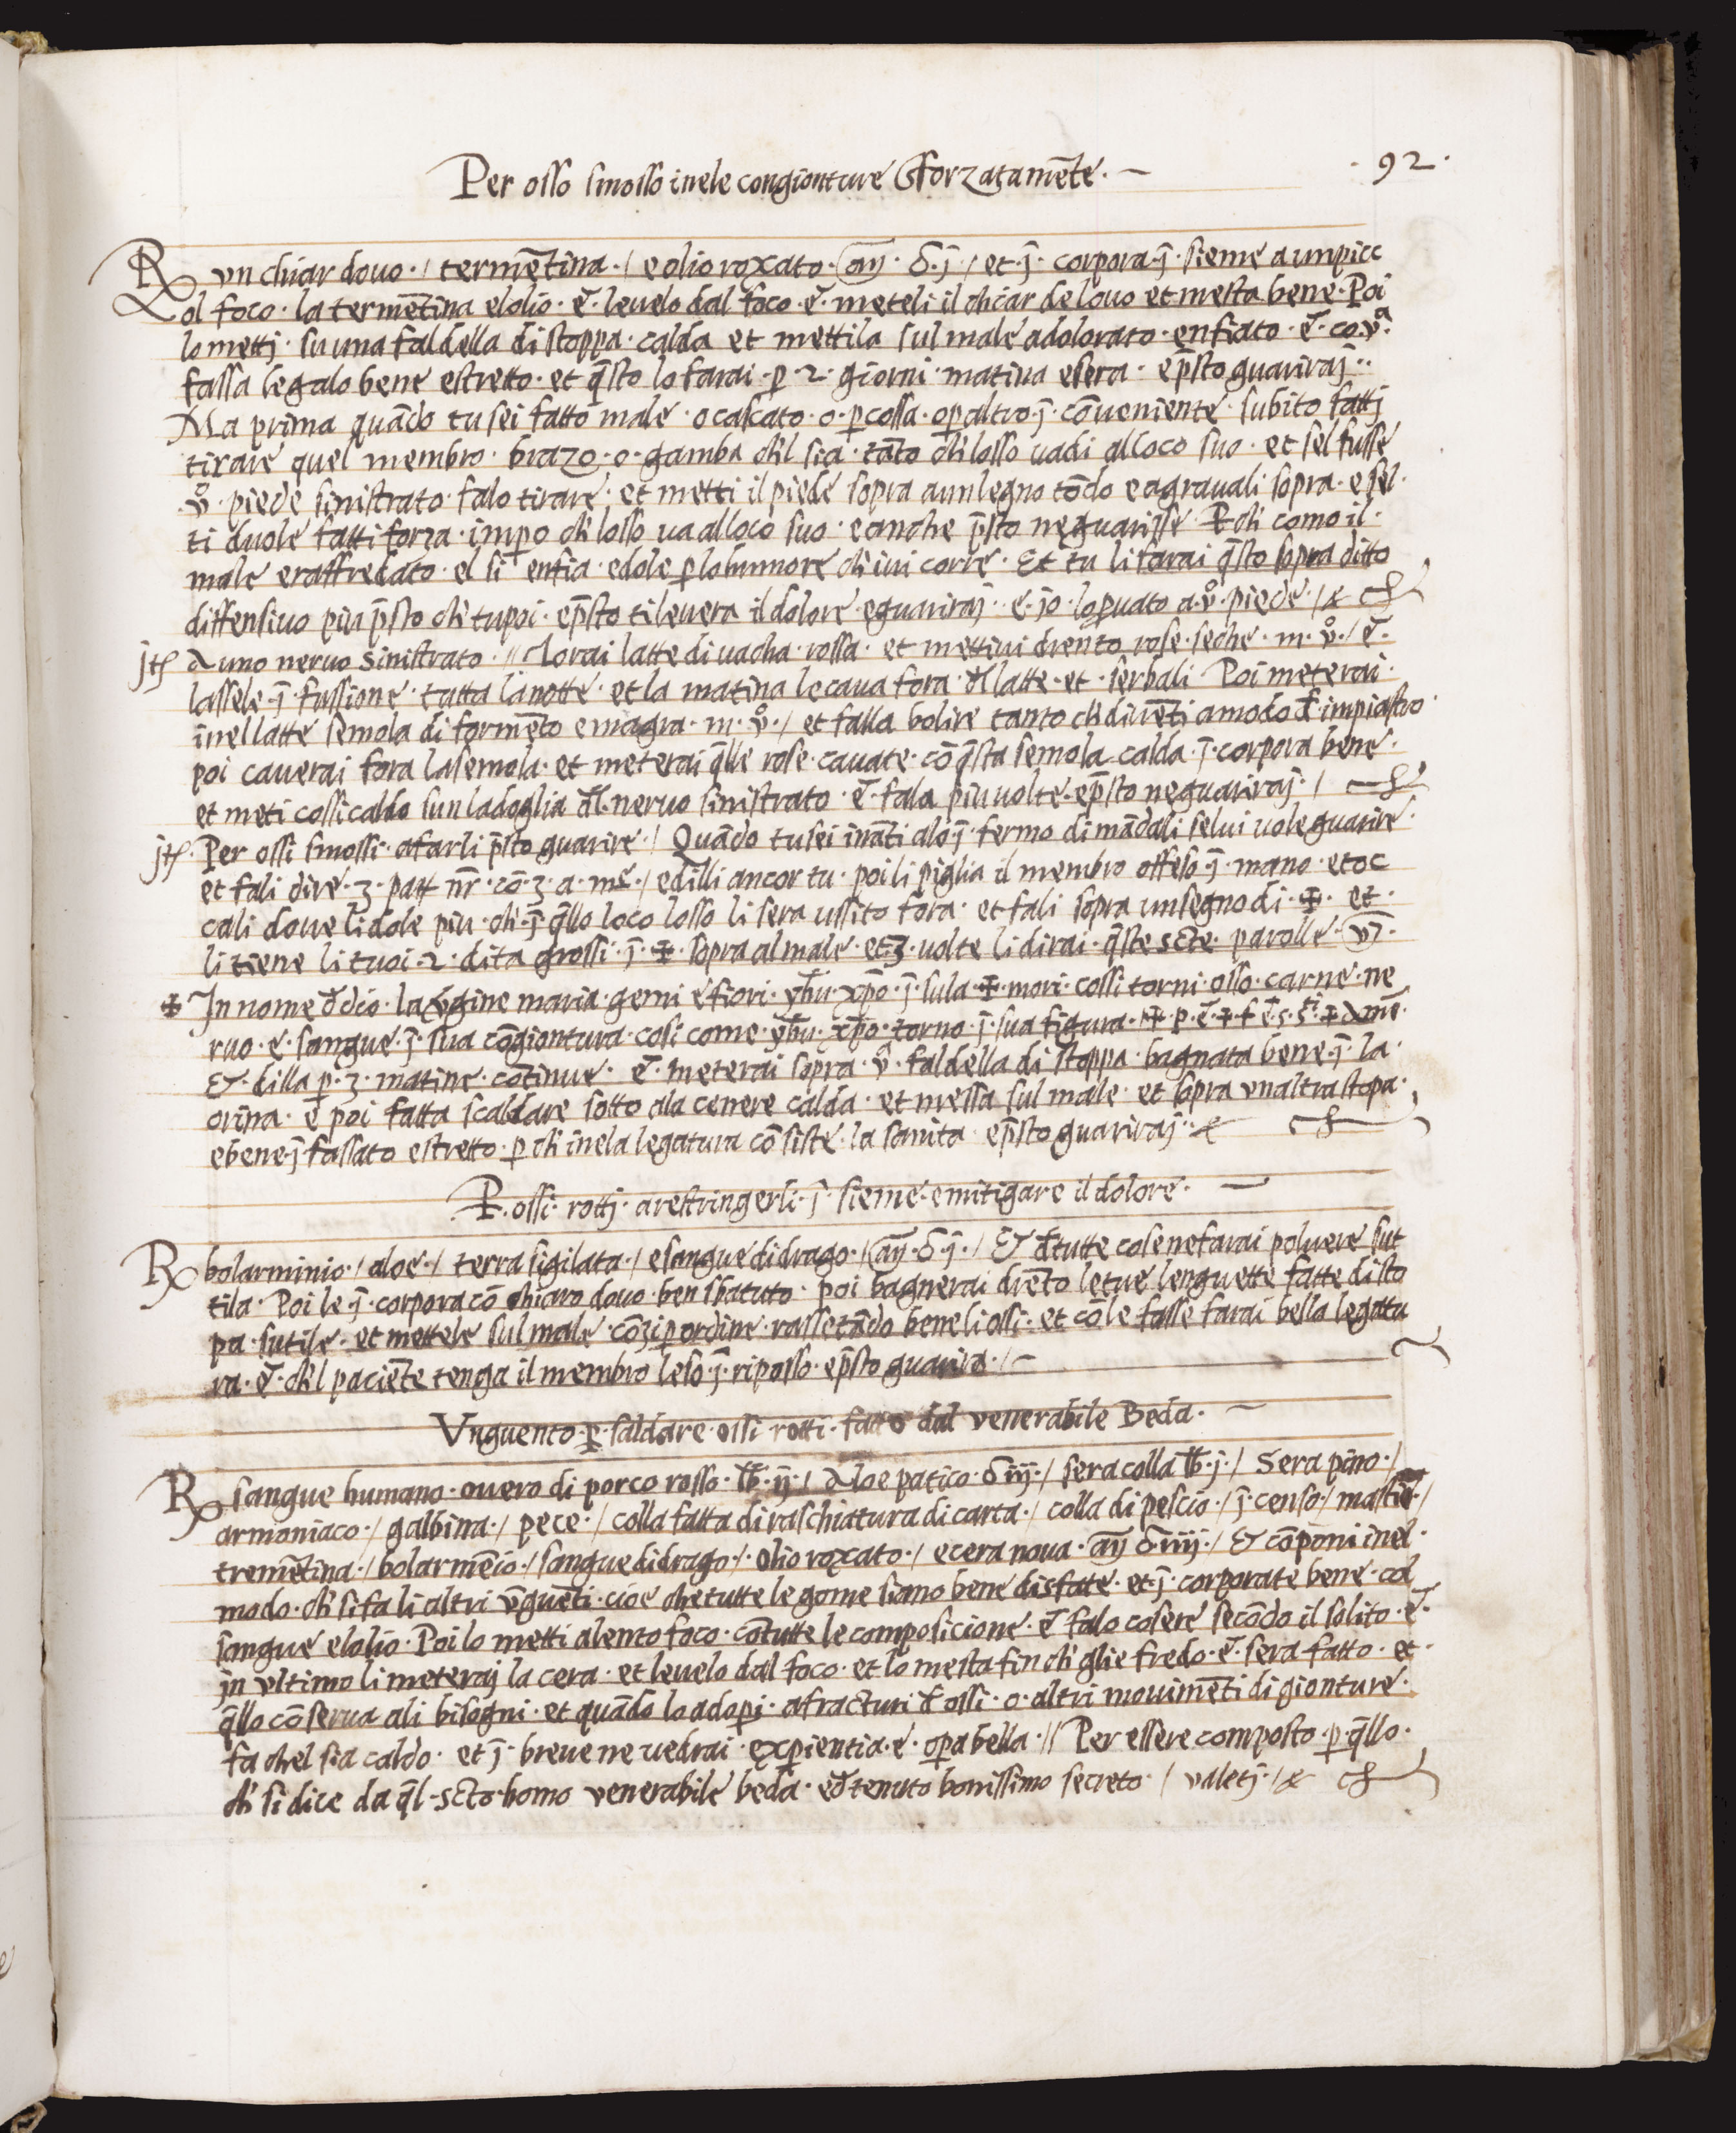 Per osso smosso inele congionture sforzatamēte · —
· 92 ·
℞ vn chiar douo · / termētina · / e olio roxato · añ · ℥ · j · / et · ȷ̄ · corpora · ȷ̄ · sieme a un picc
ol foco · la termētina elolio · ē · leuelo dal foco · ē · meteli il chiar de louo et mesta bene · Poi
lo mettj · su una faldella di stoppa · calda et mettila sul male adolorato · enfiato · ē · co · vᵃ ·
fassa legalo bene estretto · et q̄sto lo farai · p · 2 · giorni · matina esera · ep̄sto guariraj · ·
Ma prima quādo tu sei fatto male · o cascato · o · pcossa · o paltro · ȷ̄ · cōueniente · subito fattj
tirare quel membro · brazo · o · gamba ch'l sia · tāto ch' losso uadi al loco suo · et sel fusse
· v° · piede sinistrato · falo tirare · et metti il piede sopra a un legno tōdo e agrauali sopra · e sel ·
ti duole fatti forza · impo ch' losso ua al loco suo · e anche p̄sto ne guarisse · P ch' como il ·
male e raffredato · el si enfia · e dole p lo hummore ch' iui corre · Et tu li farai q̄sto sopra ditto
diffensiuo piu p̄sto ch' tu poi · ep̄sto ti leuera il dolore · e guariraj · e · jo · lo puato a · v° · piede · / &
jtꝭ A uno neruo sinistrato · // Torai latte di uacha rossa · et mettiui drento rose · seche · m · v° · / ē ·
lassele · ȷ̄ · fussione · tutta la notte · et la matina le caua fora · dl latte · et · serbali · Poi meterai ·
īnel latte semola di formēto e magra · m · v° · / et falla bolire tanto ch' diuēti a modo đ impiastro ·
poi cauerai fora la semola · et meterai q̄lle rose · cauate · cō q̄sta semola calda · ȷ̄ · corpora bene ·
et meti cossi caldo sun la doglia dl · neruo sinistrato · ē · fala piu uolte · ep̄sto ne guariraj · /
jtꝭ · Per ossi smossi · a farli p̄sto guarire · / Quādo tu sei ināti alo · ȷ̄ · fermo dimādali se lui uole guarire ·
et fali dire · 3 · patr nr̄ · cō · 3 · a · me · / e dilli ancor tu · poi li piglia il membro offeso · ȷ̄ · mano · et oc
cali doue li dole piu · ch' · ȷ̄ q̄llo loco losso li sera ussito fora · et fali sopra un segno di · ✠ · et ·
li tiene li tuoi · 2 · dita grossi · ȷ̄ · ✠ · sopra al male · et · 3 · uolte li dirai · q̄ste scte · parolle ·
✠ In nome đ dio · la v̄gine maria · gemi e fiori · yhu · xp̄o · ȷ̄ · sula · ✠ · mori · cossi torni · osso · carne · ne
ruo · e · sangue · ȷ̄ · sua cōgiontura · cosi come · yhu · xp̄o · torno · ȷ̄ · sua figura · ✠ · p · ē · ✠ · f · ē · s · sᵗⁱ · ✠ amē ·
& · dilla p · 3 · matine · cōtinue · ē · meterai sopra · vᵃ · faldella di stoppa · bagnata bene · ȷ̄ · la ·
orina · e poi fatta scaldare sotto ala cenere calda · et messa sul male · et sopra vnaltra stopa ·
e bene · ȷ̄ fassato e stretto · p ch' inela legatura cōsiste · la sanita · ep̄sto guariraj · · &
P · ossi · rottj · a restringerli · ȷ̄ · sieme · e mitigare il dolore · —
℞ bolarminio · / aloe · / terra sigilata · / e sangue di drago · / añ · ℥ · j · / & đ tutte cose ne farai poluere sut
tila · Poi le · ȷ̄ · corpora cō chiaro douo · ben sbatuto · poi bagnerai drēto le tue lenguette fatte di sto
pa · sutile · et mettele sul male · cō 3 p ordine · rassetādo bene li ossi · et cō le fasse farai bella legattu
ra · ē · ch'l paciēte tenga il membro leso · ȷ̄ · riposso · ep̄sto guarira · / —
Vnguento · p · saldare · ossi rotti · fatto dal venerabile Beda · —
℞ sangue humano · ouero di porco rosso · lb · ij · / Aloe patico · ℥ iij · / sera colla lb · j · / Sera pino · /
armoniaco · / galbina · / pece · / colla fatta di raschiatura di carta · / colla di pescio · / ȷ̄ · censo · / mastic · /
tremētina · / bolarmēio · / sangue di drago · / olio roxato · / e cera noua · añ ℥ iiij · / & cōponi inel ·
modo · ch' si fa li altri v̄guēti · cioe che tutte le gome siano bene disfate · et · ȷ̄ · corporate bene · col
sangue elolio · Poi lo metti a lento foco · cō tutte le composicione · ē falo cosere secōdo il solito · ē ·
jn vltimo li meteraj la cera · et leuelo dal foco · et lo mesta fin ch' glie fredo · ē · sera fatto · et ·
q̄llo cōserua ali bisogni · et quādo lo adopi · a fracturi đ ossi · o · altri mouimēti di gionture ·
fa chel sia caldo · et ȷ̄ · breue ne uedrai expientia · e · opa bella · // Per essere composto · p · q̄llo ·
ch' si dice da q̄l · scto · homo venerabile beda · e đ tenuto bonissimo secreto · / valetj · / &